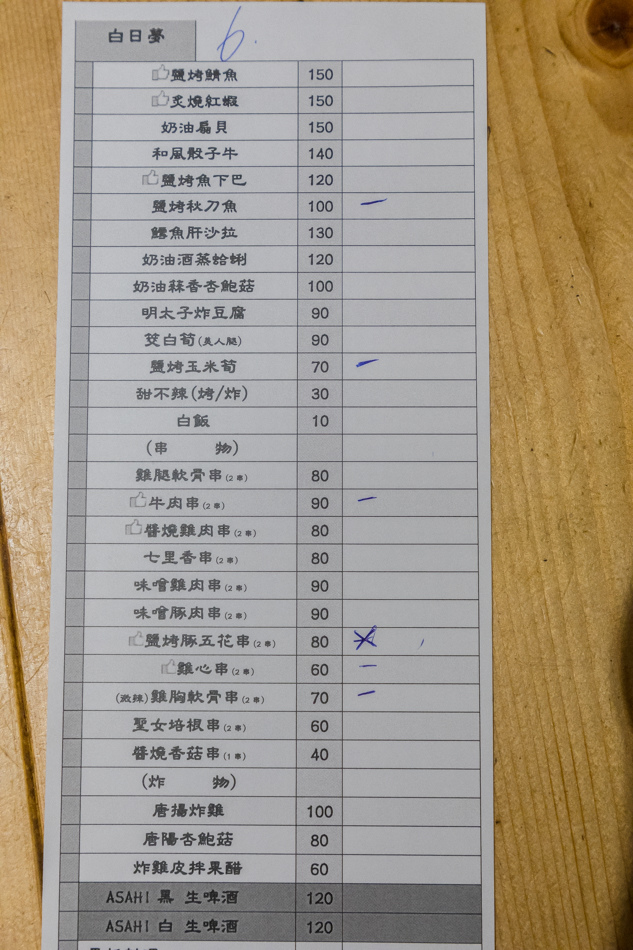 白日夢 6.
鹽烤鯖魚 150
炙燒紅蝦 150
奶油扇貝 150
和風骰子牛 140
鹽烤魚下巴 120
鹽烤秋刀魚 100 一
鱈魚肝沙拉 130
奶油酒蒸蛤蜊 120
奶油蒜香杏鮑菇 100
明太子炸豆腐 90
茭白荀(美人腿) 90
鹽烤玉米荀 70 一
甜不辣(烤/炸) 30
白飯 10
(串 物)
雞腿軟骨串(2串) 80
牛肉串(2串) 90 一
醬燒雞肉串(2串) 80
七里香串(2串) 80
味噌雞肉串(2串) 90
味噌豚肉串(2串) 90
鹽烤豚五花串(2串) 80
雞心串(2串) 60 一
(微辣)雞胸軟骨串(2串) 70 一
聖女培根串(2串) 60
醬燒香菇串(1串) 40
(炸 物)
唐揚炸雞 100
唐陽杏鮑菇 80
炸雞皮拌果醋 60
ASAHI 黑 生啤酒 120
ASAHI 白 生啤酒 120